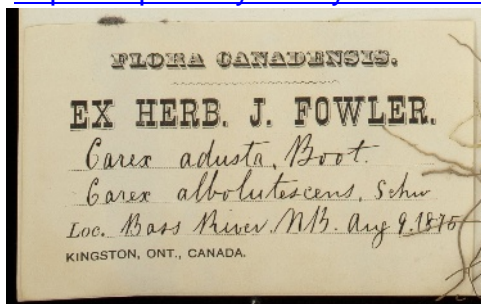 FLORA CANADENSIS.
EX HERB. J. FOWLER.
Carex adusta, Boot.
Carex albolutescens, Schw
Loc. Bass River. N.B. Aug 9. 1875
KINGSTON, ONT., CANADA.